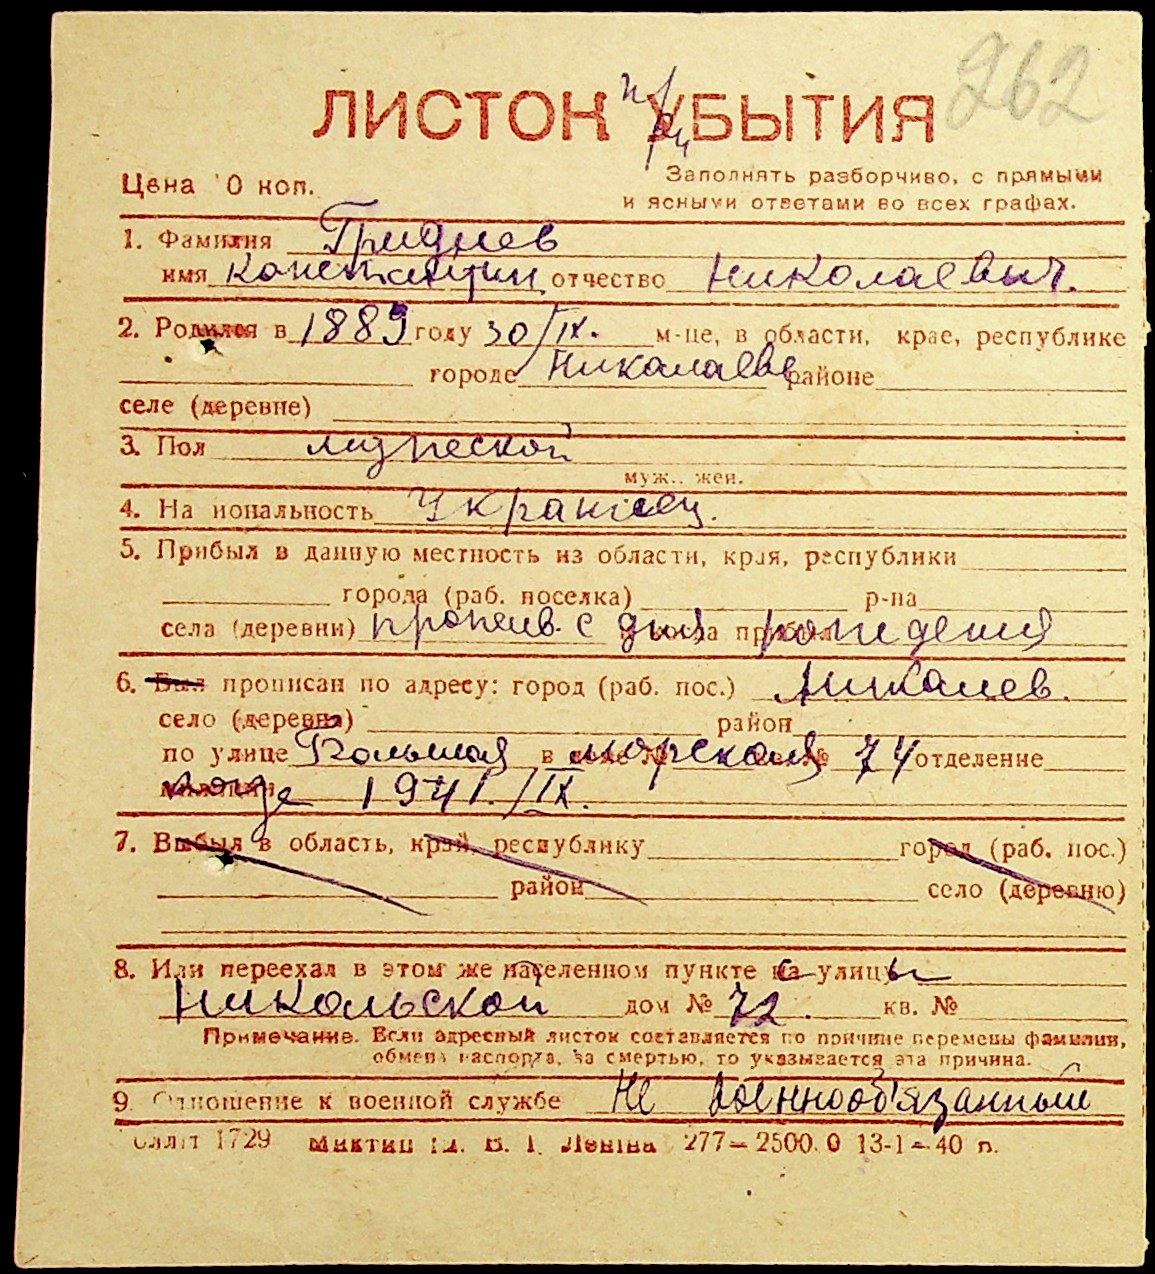 262
ЛИСТОК УБЫТИЯ
Цена 10 коп.
Заполнять разборчиво, с прямыми
и ясными ответами во всех графах.
1. Фамилия Гриднев
имя Константин отчество Николаевич.
2. Родился в 1889 году 30/IX. м-це, в области, крае, республике
городе Николаеве районе
селе (деревне)
3. Пол мужеской
муж.. жен.
4. Национальность Украинец.
5. Прибыл в данную местность из области, края, республики
города (раб. поселка) р-на
села (деревни) прожив. с дня рождения
6. Был прописан по адресу: город (раб. пос.) Николаев.
село (деревня) район
по улице Большая в морская № 74 отделение
1941/IX.
7. Выбыл в область, край, республику город (раб. пос.)
район село (деревню)
8. Или переехал в этом же населенном пункте на улицу
Никольской дом № 72. кв. №
Примечание. Если адресный листок составляется по причине перемены фамилии,
обмена паспорта, за смертью, то указывается эта причина.
9 Отношение к военной службе Не военнообязанный
1729 В. І. Леніна 277—2500.0 13-1—40 п.